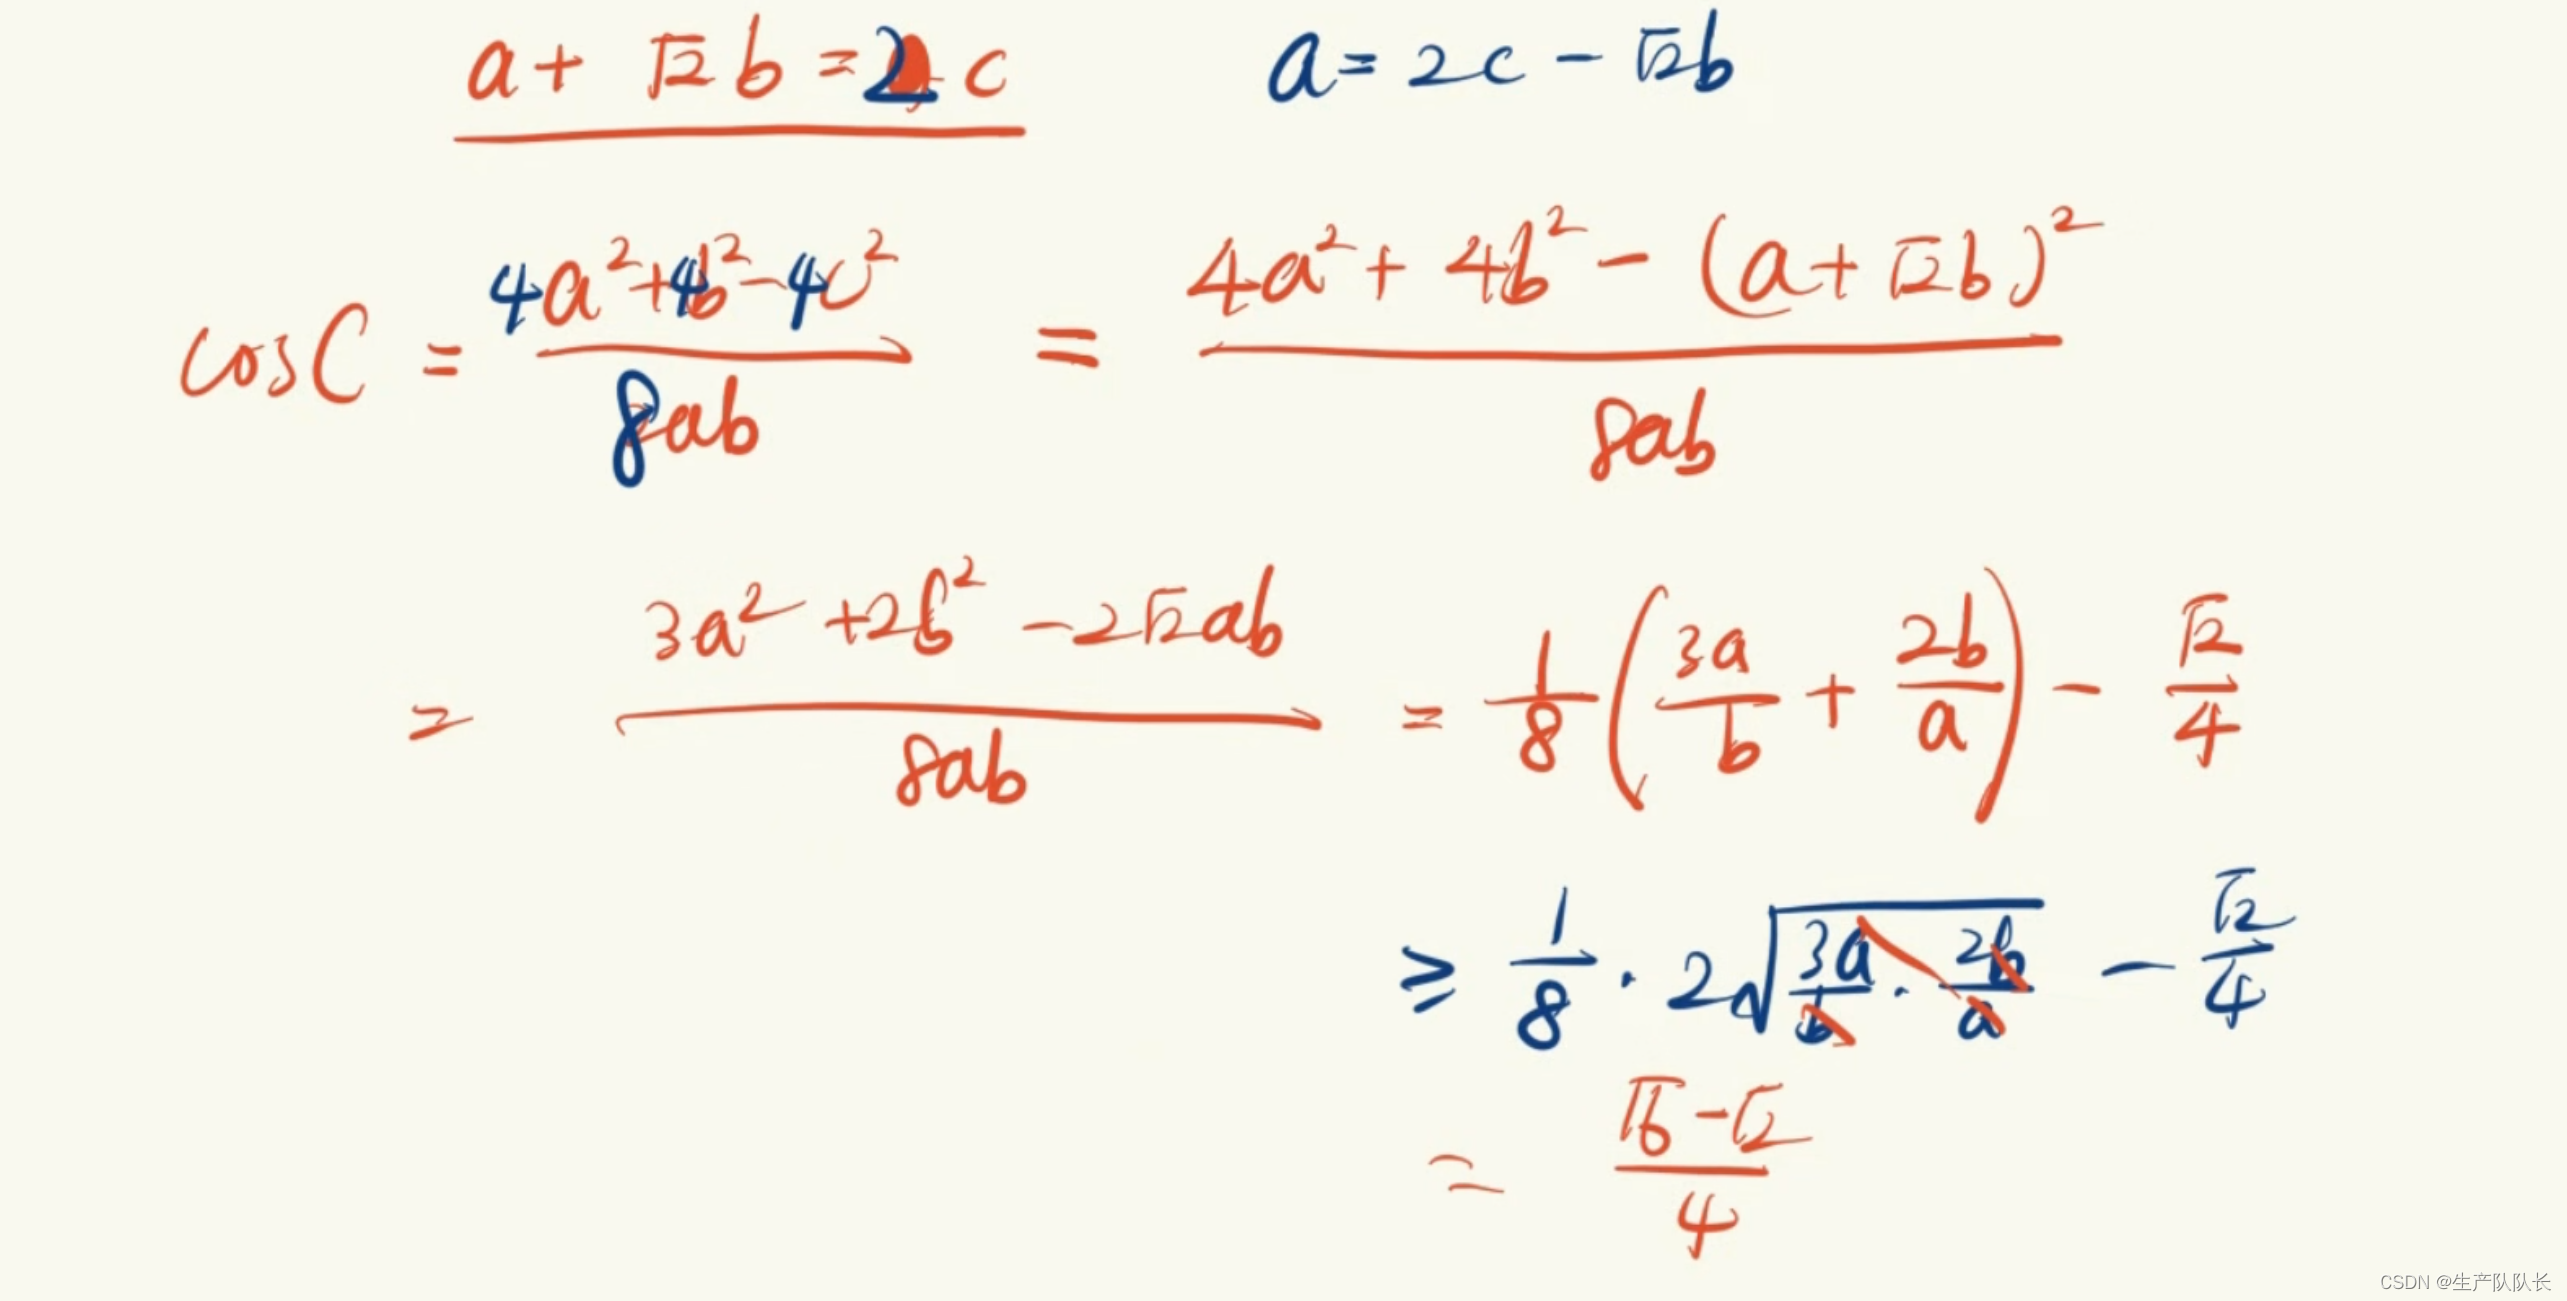 a + √2 b = 2c    a = 2c - √2b
cosC = (4a² + 4b² - 4c²)/(8ab) = (4a² + 4b² - (a + √2b)²)/(8ab)
= (3a² + 2b² - 2√2ab)/(8ab) = 1/8 (3a/b + 2b/a) - √2/4
≥ 1/8 · 2√(3a/b · 2b/a) - √2/4
= (√6 - √2)/4
CSDN @生产队队长